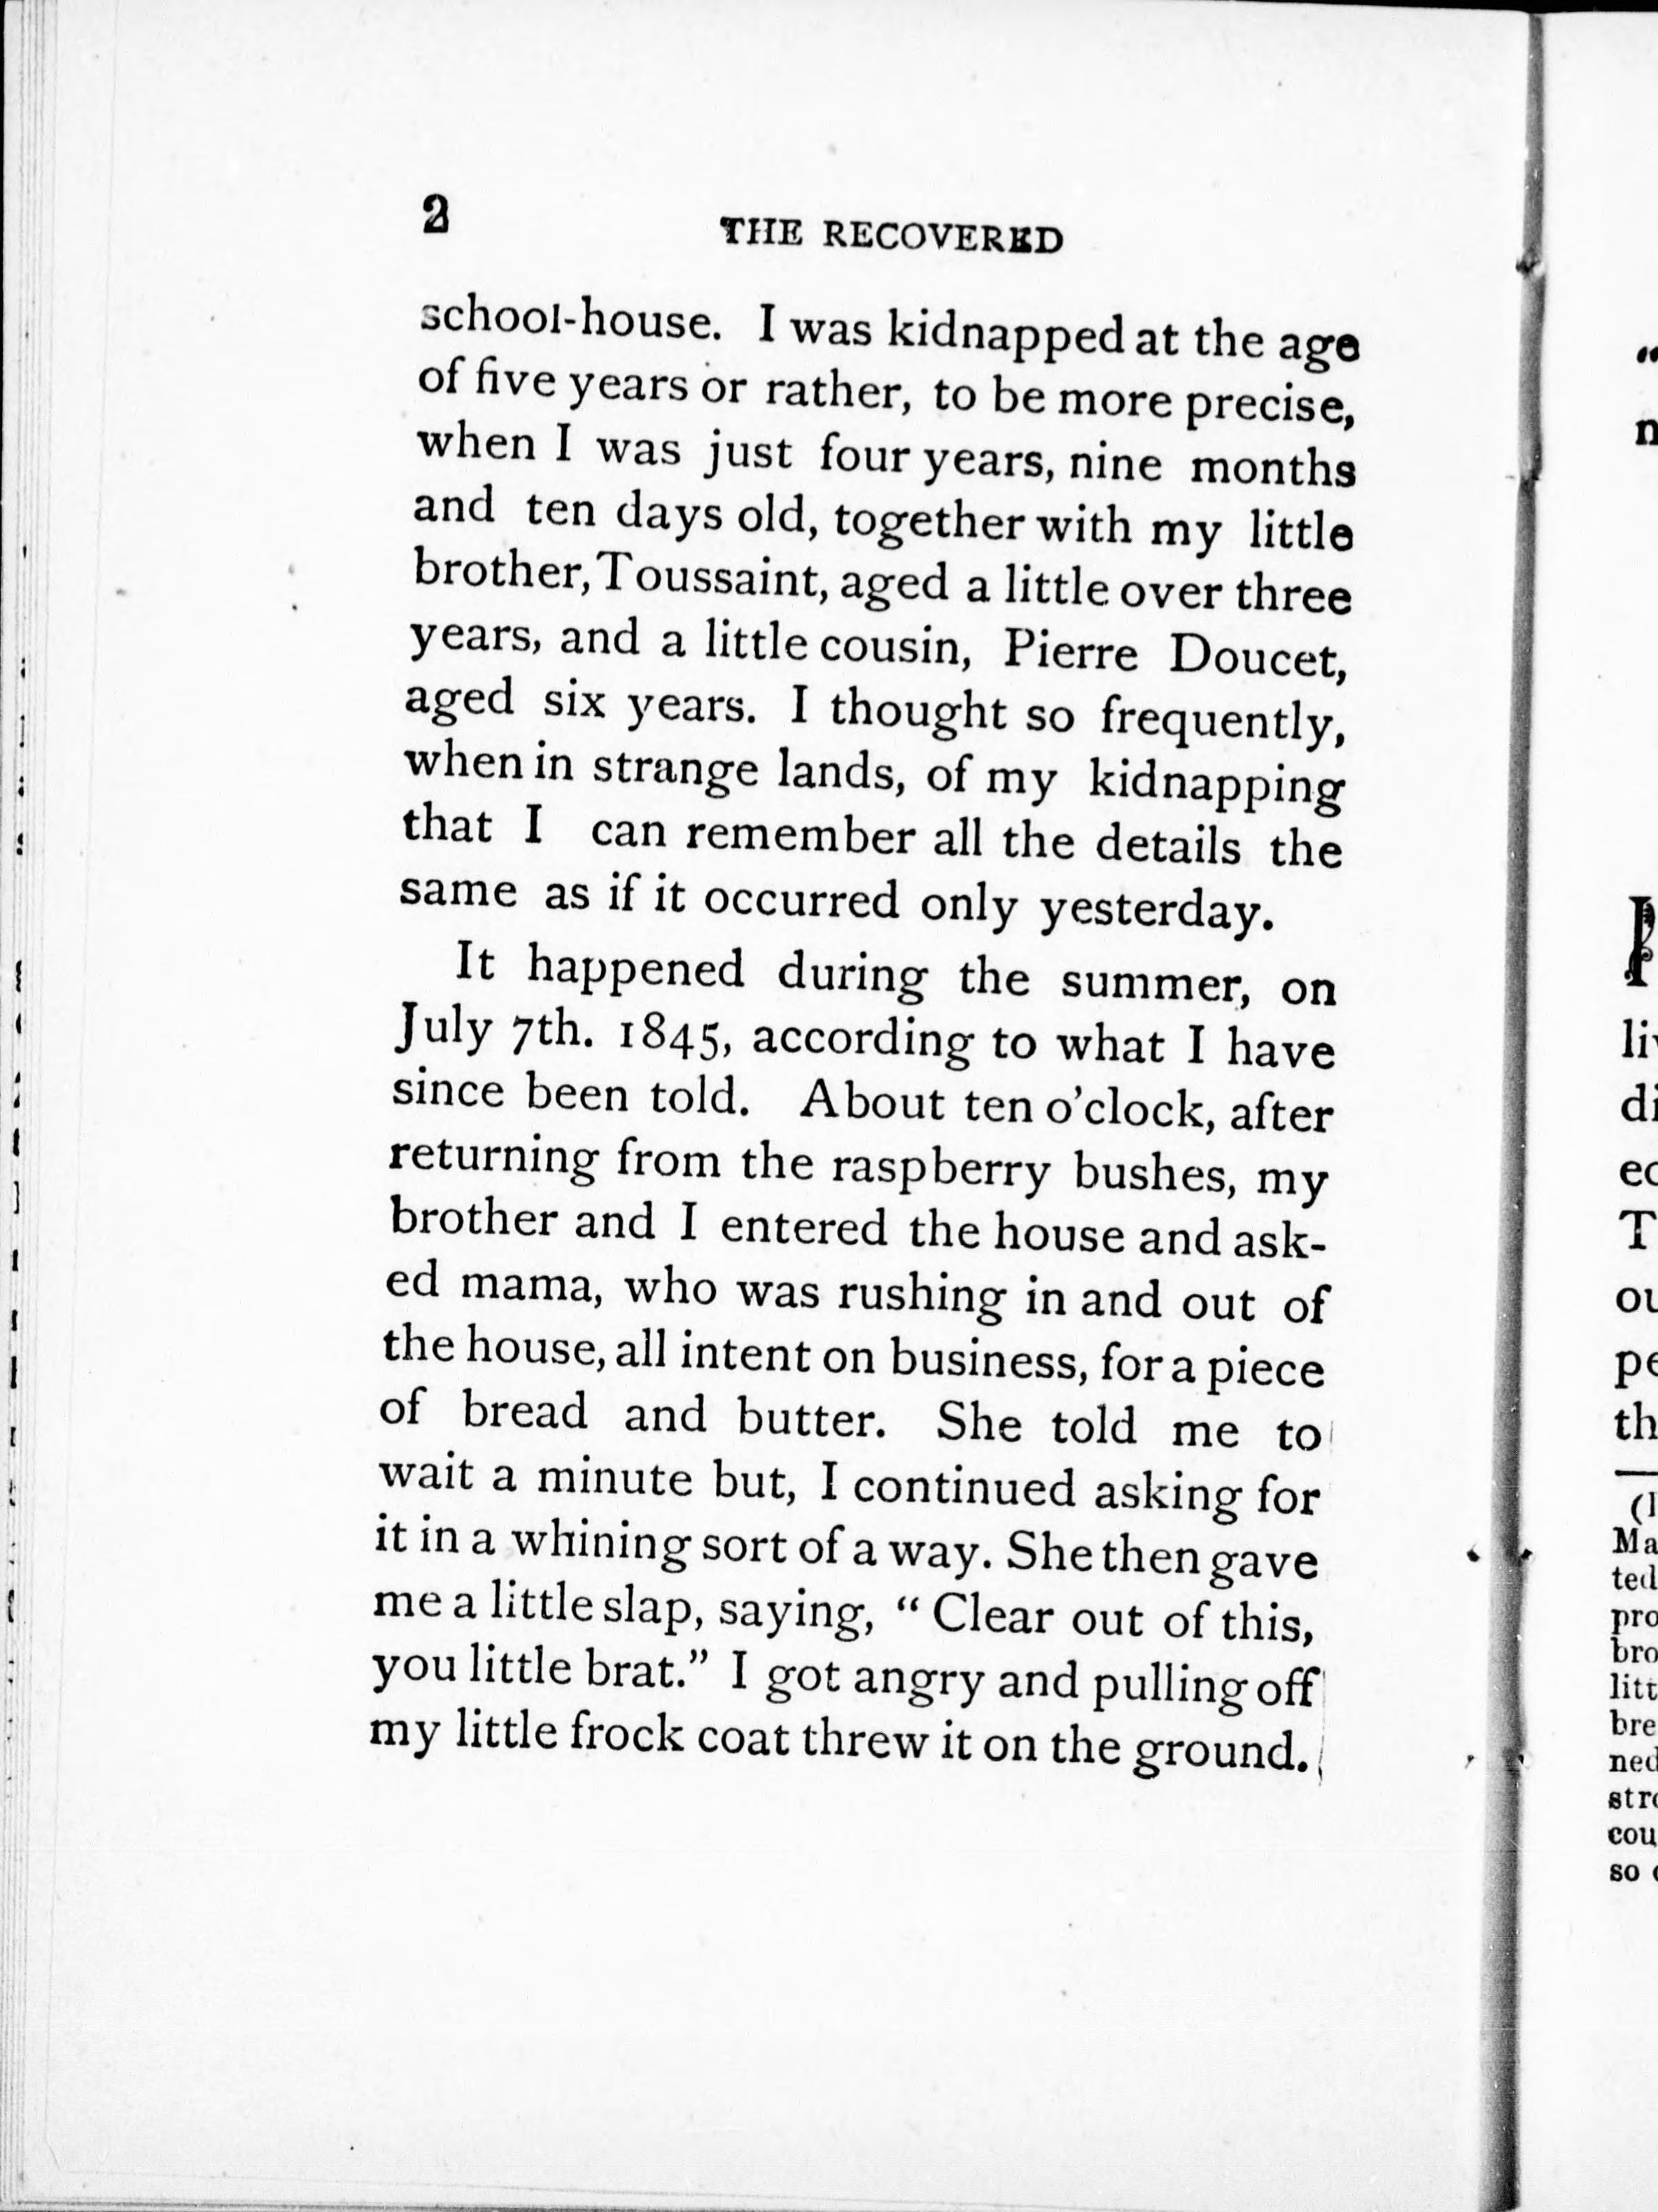 2
THE RECOVERED
school-house. I was kidnapped at the age
of five years or rather, to be more precise,
when I was just four years, nine months
and ten days old, together with my little
brother, Toussaint, aged a little over three
years, and a little cousin, Pierre Doucet,
aged six years. I thought so frequently,
when in strange lands, of my kidnapping
that I can remember all the details the
same as if it occurred only yesterday.
It happened during the summer, on
July 7th. 1845, according to what I have
since been told. About ten o'clock, after
returning from the raspberry bushes, my
brother and I entered the house and ask-
ed mama, who was rushing in and out of
the house, all intent on business, for a piece
of bread and butter. She told me to
wait a minute but, I continued asking for
it in a whining sort of a way. She then gave
me a little slap, saying, “ Clear out of this,
you little brat.” I got angry and pulling off
my little frock coat threw it on the ground.